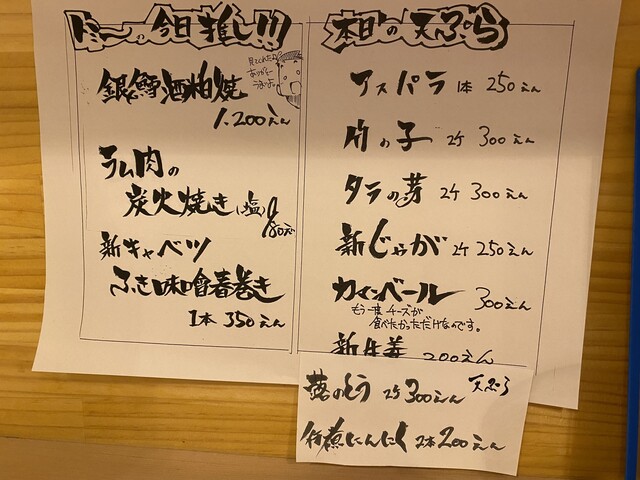 今日推し!!!
銀鱈酒粕焼
1.200えん
ラム肉の
炭火焼き(塩)
980えん
新キャベツ
ふき味噌春巻き
1本 350えん
本日の天ぷら
アスパラ 1本 250えん
竹の子 2ケ 300えん
タラの芽 2ケ 300えん
新じゃが 2ケ 250えん
カマンベール 300えん
もう一度チーズが
食べたかっただけなのです。
新生姜 200えん
蕗のとう 2ケ 300えん 天ぷら
にんにく 2本 200えん